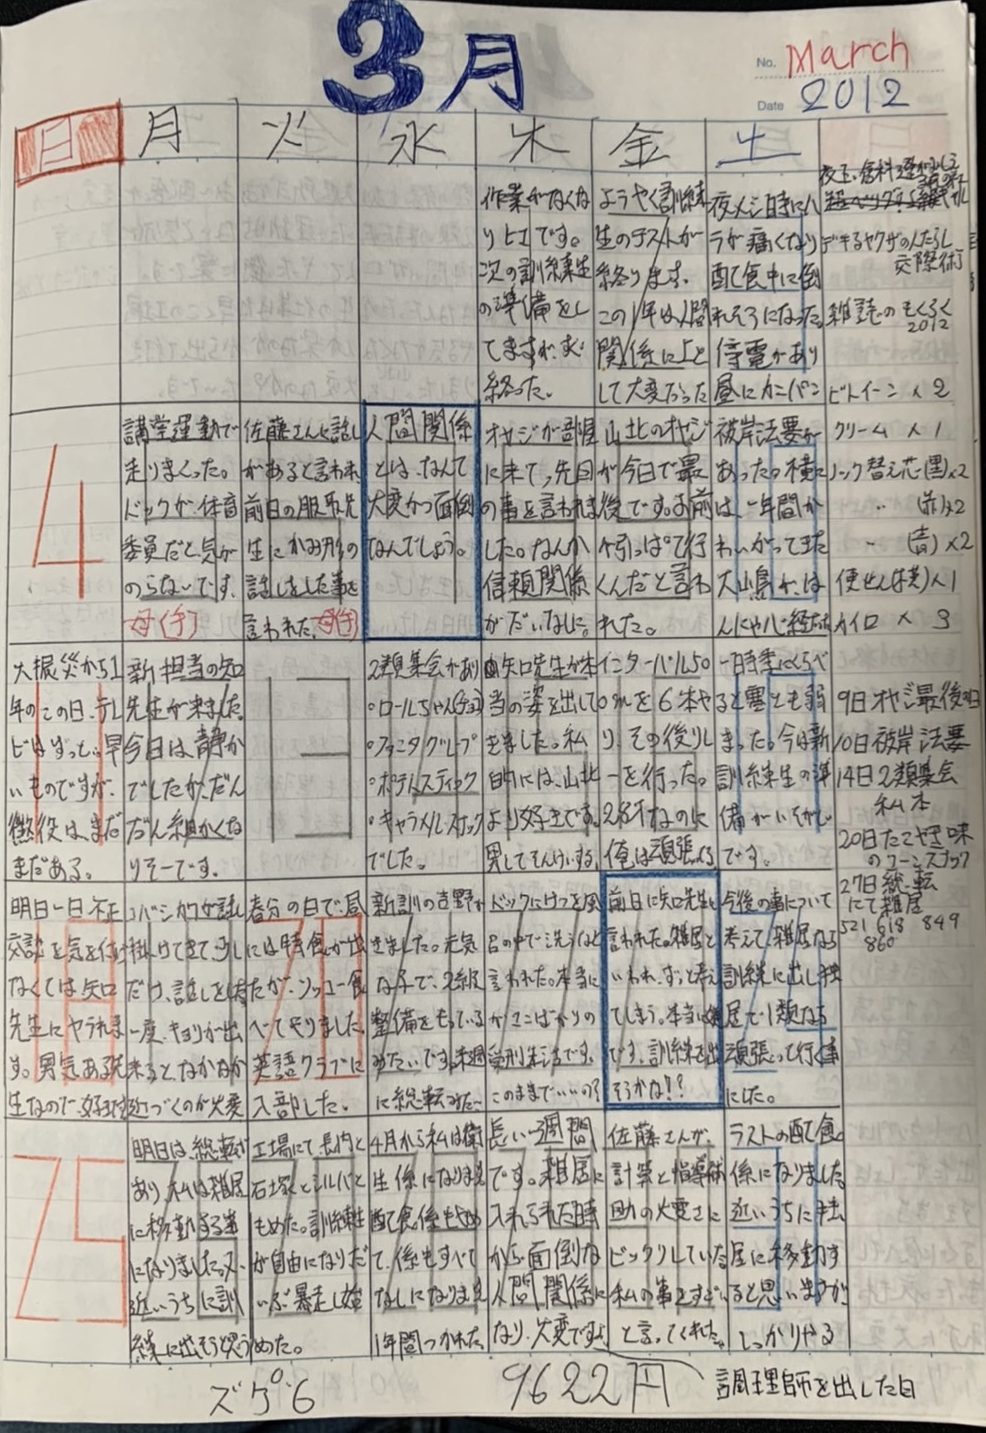 3月
No. March
Date 2012
日 月 火 水 木 金 土
作業がなくな
りヒエです。
次の訓練生
の準備をし
てますが、
終った。
ようやく訓練
生のテストが
終ります。
この1年は人間
関係に上と
して大変だった
夜メシ時にハ
ラが痛くなり
配食中に倒
れそうになった
停電があり
昼にカンパン
デキるヤクザの人たらし
交際術
雑誌のもくろく
2012
ビトイーン × 2
4
講堂運動で
走りまくった。
ドックが体育
委員だと気が
のらないです。
母(手)
佐藤さんに話し
があると言われ
前日の服取先
生にかみ形の
話しをした事を
言われた。母(手)
人間関係
とは、なんて
大変かつ面倒
なんでしょう。
オヤジが部屋
に来て、先回
の事を言われま
した。なんか
信頼関係
がだいなしに。
山北のオヤジ
が今日で最
後です。お前
が引っぱって行
くんだと言わ
れたこ。
彼岸法要が
あった。横に
は、一年間か
わいがってきた
大山鳥が、は
んにゃ心経
クリーム × 1
ノック替え芯(黒)×2
〃 (赤)×2
〃 (青)×2
便せん(横)×1
カイロ × 3
大振災から1
年のこの日、テレ
ビはずっと、早
いものですが、
懲役は、まだ
まだある。
新担当の知
先生が来ました
今日は、静か
でしたが、だん
だん細かくな
りそーです。
13
2類集会があり
・ロールちゃん(チョコ)
・ファニタグレープ
・ポテトスティック
・キャラメルスナック
でした。
矢口先生が本
当の姿を出して
きました。私
的には、山北
より好きです。
男してそんけいする
インターバル50
0mを6本や
り、その後リレ
ーを行った。
2名才なのに
俺は頑張る
一時季にくらべ
ると寒さも弱
まった。今は新
訓練生の準
備がいそがしい
です。
9日オヤジ最後の日
10日彼岸法要
14日2類集会
私本
20日たこやき味
のコーンスナック
27日総転
にて雑居
521 618 849
860
明日一日不正
交談を気を付け
なくては矢口
先生にヤラれま
す。男気ある先
生なので好きです
コバシが女話し
掛けてきて少し
だけ、話しをした
一度、キョリが出
来ると、なかなか
近づくのが大変
春分の日で昼
には特食が出
たが、ソッコー食
べてやりました。
英語クラブに
入部した。
新訓の吉野が
きました。元気
な子で、2級
整備をもっている
みたいです。来週
に総転みた〜
ドックにけつを風
呂の中で洗うなと
言われた。本当に
がまこばかりの
受刑生活です。
このままでいいの?
前日に矢口先生に
言われた。雑居と
いわれ、ずっと考え
てしまう。本当に嫌
です。訓練を出
そうかな!?
今後の事について
考えて雑居なら
訓練に出し独
居で1類なら
頑張って行く事
にした。
25
明日は、総転が
あり、私は雑居
に移動する事
になりました。又、
近いうちに訓
練に出そう思う
工場にて、長内と
石塚とシルバと
もめた。訓練生
が自由になりだ
いぶ暴走し始
めた。
4月から私は衛
生係になります
配食係もやめ
て、係もすべて
なしになります
1年間つかれた
長い一週間
です。雑居に
入れられた時
から面倒な
人間関係に
なり、大変ですよ
佐藤さんが、
計算と指導補
助の大変さに
ビックリしていた
私の事をすごい
と言ってくれた。
ラストの配食。
係になりました
近いうちに独
居に移動す
ると思いますが
しっかりやる
ズゲ6
9622円
調理師を出した日